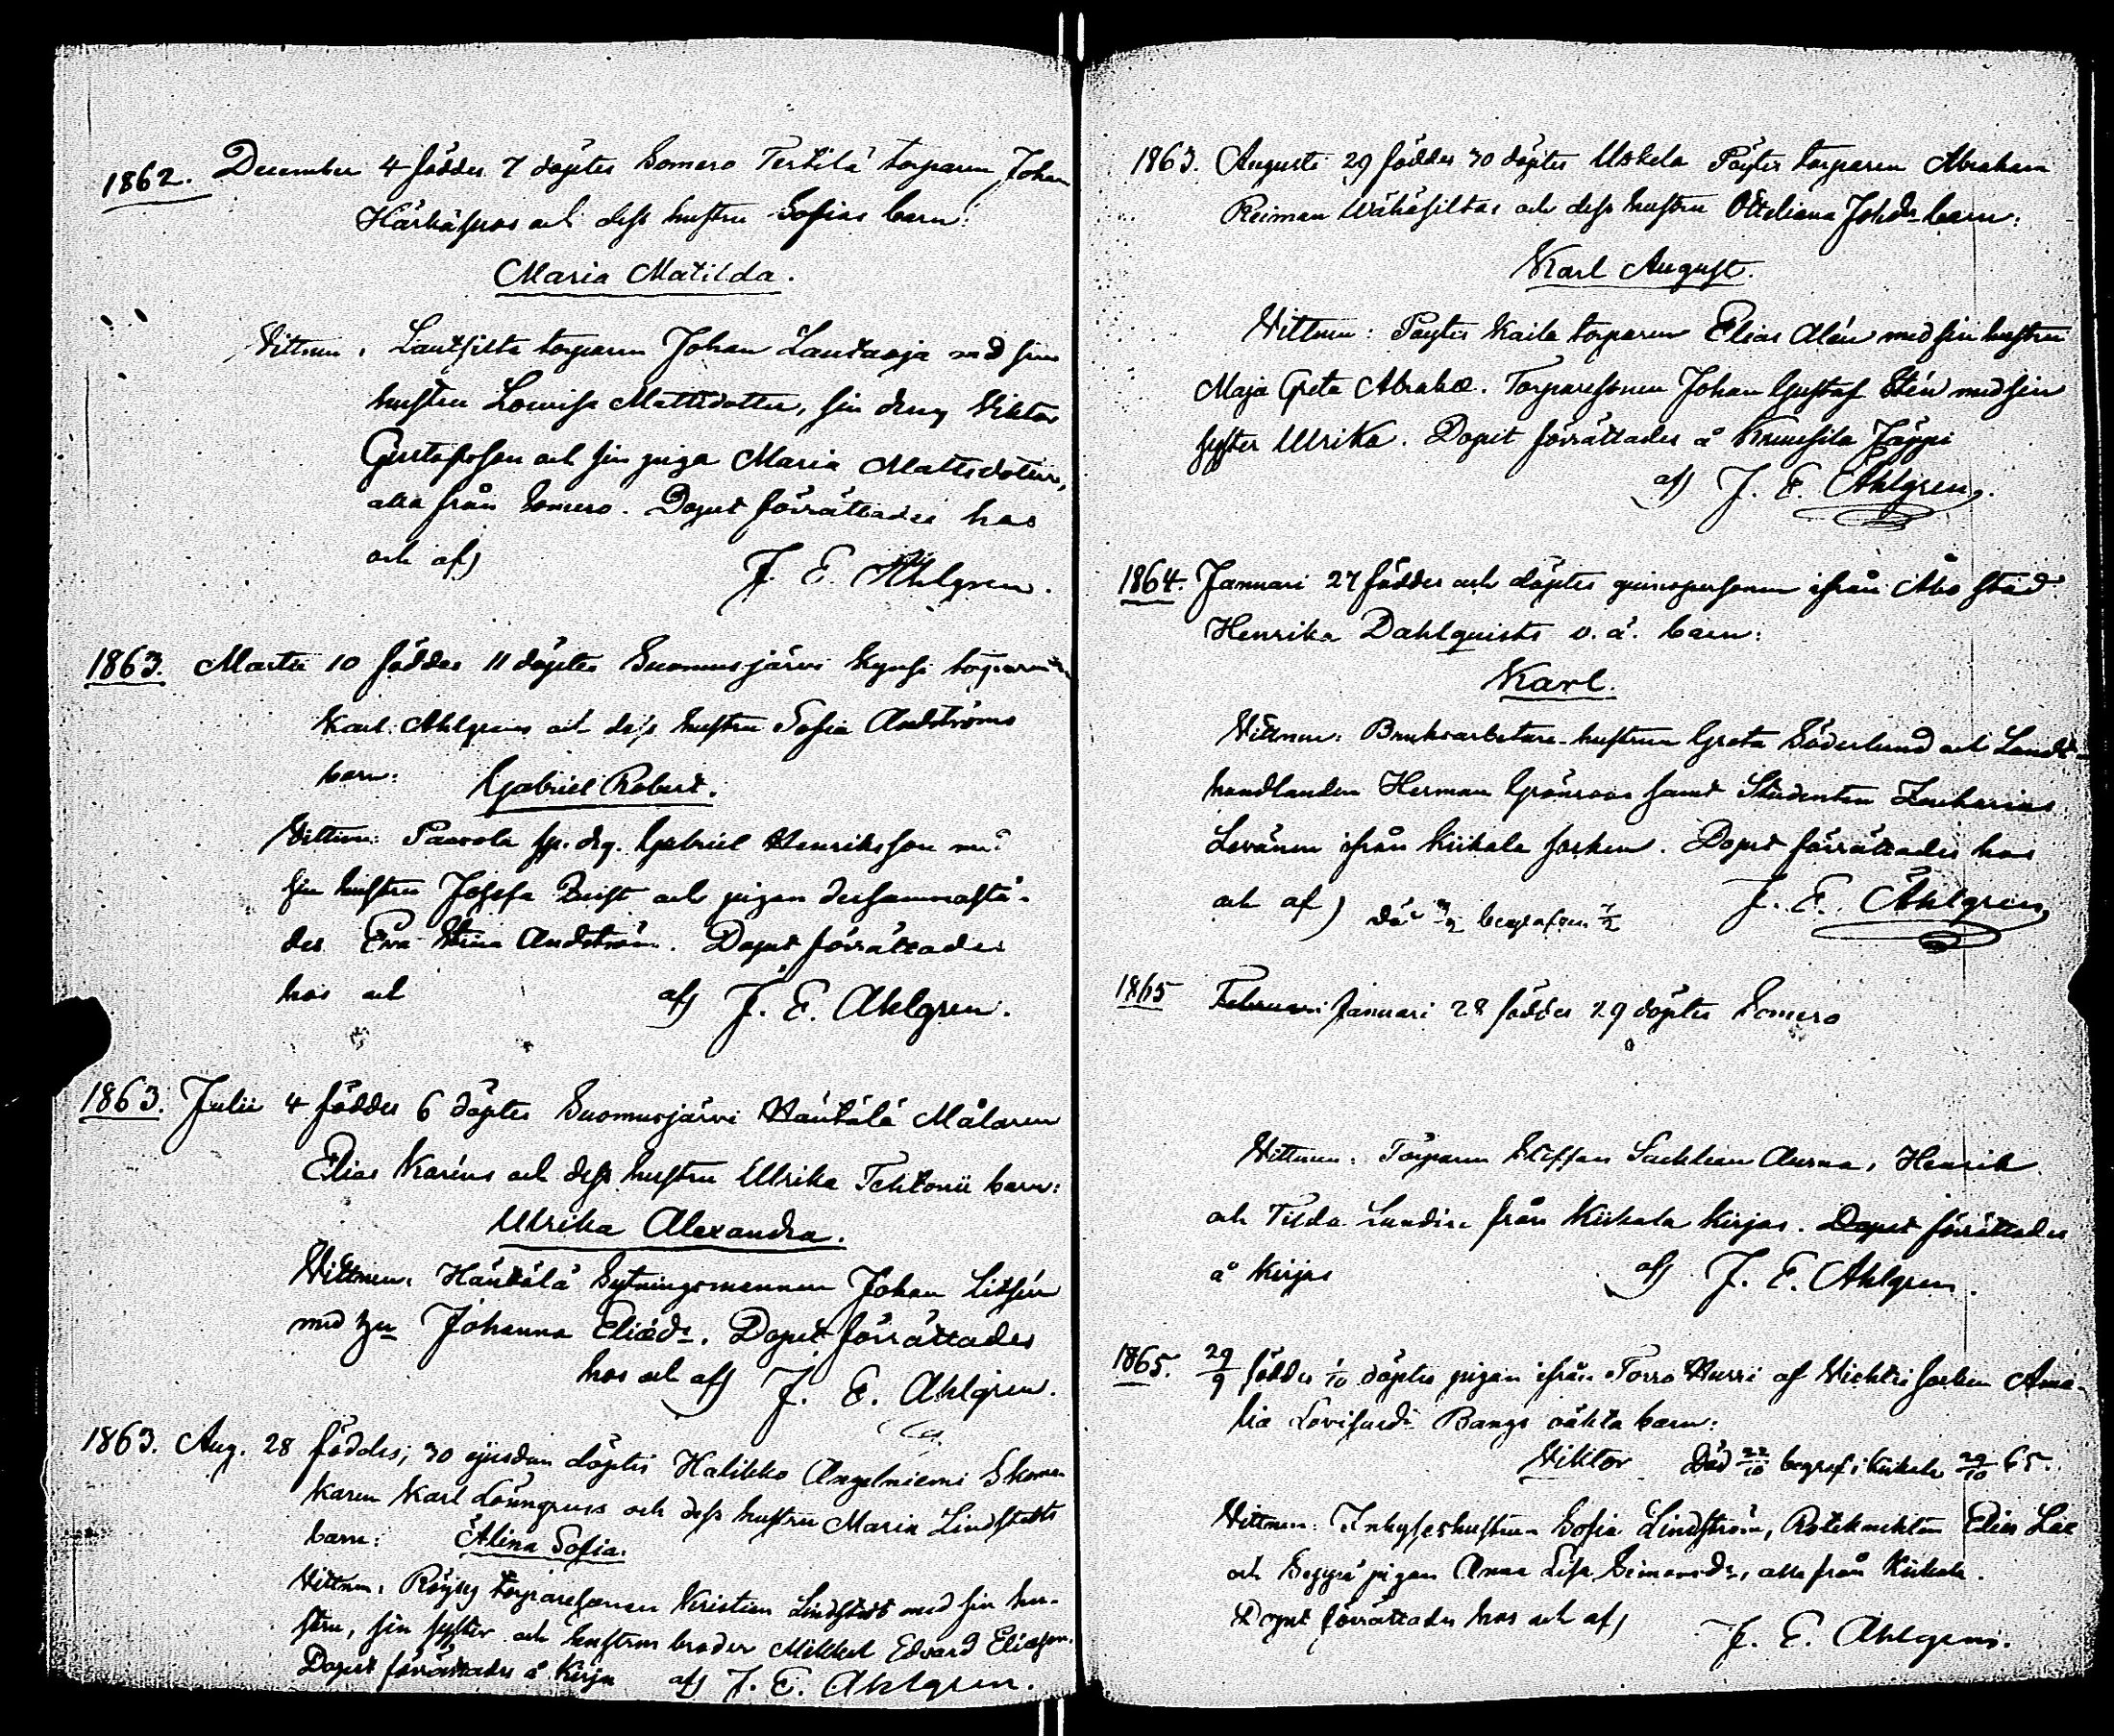 1862. December 4 föddes 7 döptes Somero Terttilä torparen Johan
Härkäfuos och dess hustru Sofias barn:
Maria Matilda.
Vittnen: Lautsilta torparen Johan Lautaoja med sin
hustru Lowisa Mattsdotter, sin dräng Viktor
Gustafsson och sin piga Maria Mattsdotter,
alla från Somero. Dopet förrättades hos
och af) J. E. Ahlgren.
1863. Martii 10 föddes 11 döptes Suomusjärvi Kynsi torparen
Karl Ahlgrens och dess hustru Sofia Andströms
barn: Gabriel Robert.
Vittnen: Paavola sp. drg. Gabriel Henriksson med
sin hustru Josefa Quist och pigan dersammastä-
des Eva Stina Andström. Dopet förrättades
hos och af) J. E. Ahlgren.
1863. Julii 4 föddes 6 döptes Suomusjärvi Häntälä Målaren
Elias Karéns och dess hustru Ulrika Tehtonii barn:
Ulrika Alexandra.
Vittnen: Häntälä Sytningsmannen Johan Litsén
med hu Johanna Eliædr. Dopet förrättades
hos och af) J. E. Ahlgren.
1863. Aug. 28 föddes, 30 ejusdem döptes Halikko Angelniemi Skoma-
karen Karl Lönngrens och dess hustru Maria Lindstedts
barn: Alina Sofia.
Vittnen: torparesonen Kristian Lindstedt med sin hu-
stru, sin syster och hustruns broder Mikkel Edvard Eliasson.
Dopet förrättades å Kirja af) J. E. Ahlgren.
1863. Augusti 29 föddes 30 döptes Uskela Pöytis torparen Abraham
Reiman Wähäsiltas och dess hustru Ottiliana Johdr barn:
Karl August.
Vittnen: Poytis Kaila torparen Elias Alén med sin hustru
Maja Greta Abrahæ. Torparesonen Johan Gustaf Stén med sin
syster Ulrika. Dopet förrättades å Kruusila Jäppi
af) J. E. Ahlgren.
1864. Januari 27 föddes och döptes qvinspersonen ifrån Åbo stad
Henrika Dahlquists o. ä. barn:
Karl.
Vittnen: Bruksarbetare-hustrun Greta Söderlund och Landt-
handlanden Herman Grönroos samt Studenten Zacharias
Levänen ifrån Kiikala socken. Dopet förrättades hos
och af) begrafven J. E. Ahlgren
1865 Februari Januari 28 föddes 29 döptes Somero
Vittnen: Torparen Steffan Sacklean Aurna, Henrik
och Tilda Lundin från Kiikala Kirjas. Dopet förrättades
å Kirjas af) J. E. Ahlgren.
1865. 29/9 föddes 1/10 döptes pigan ifrån Torro Hurri af Vichtis socken Ama-
lia Lovisædr Bangs oäkta barn:
Viktor Död 22/10 begraf. i Kiikala 29/10 65.
Vittnen: Inhyseshustrun Sofia Lindström, Roteknekten Elias Läe
och Seppä pigan Anna Lisa Simonsdr, alla från Kiikala.
Dopet förrättades hos och af)
J. E. Ahlgren.